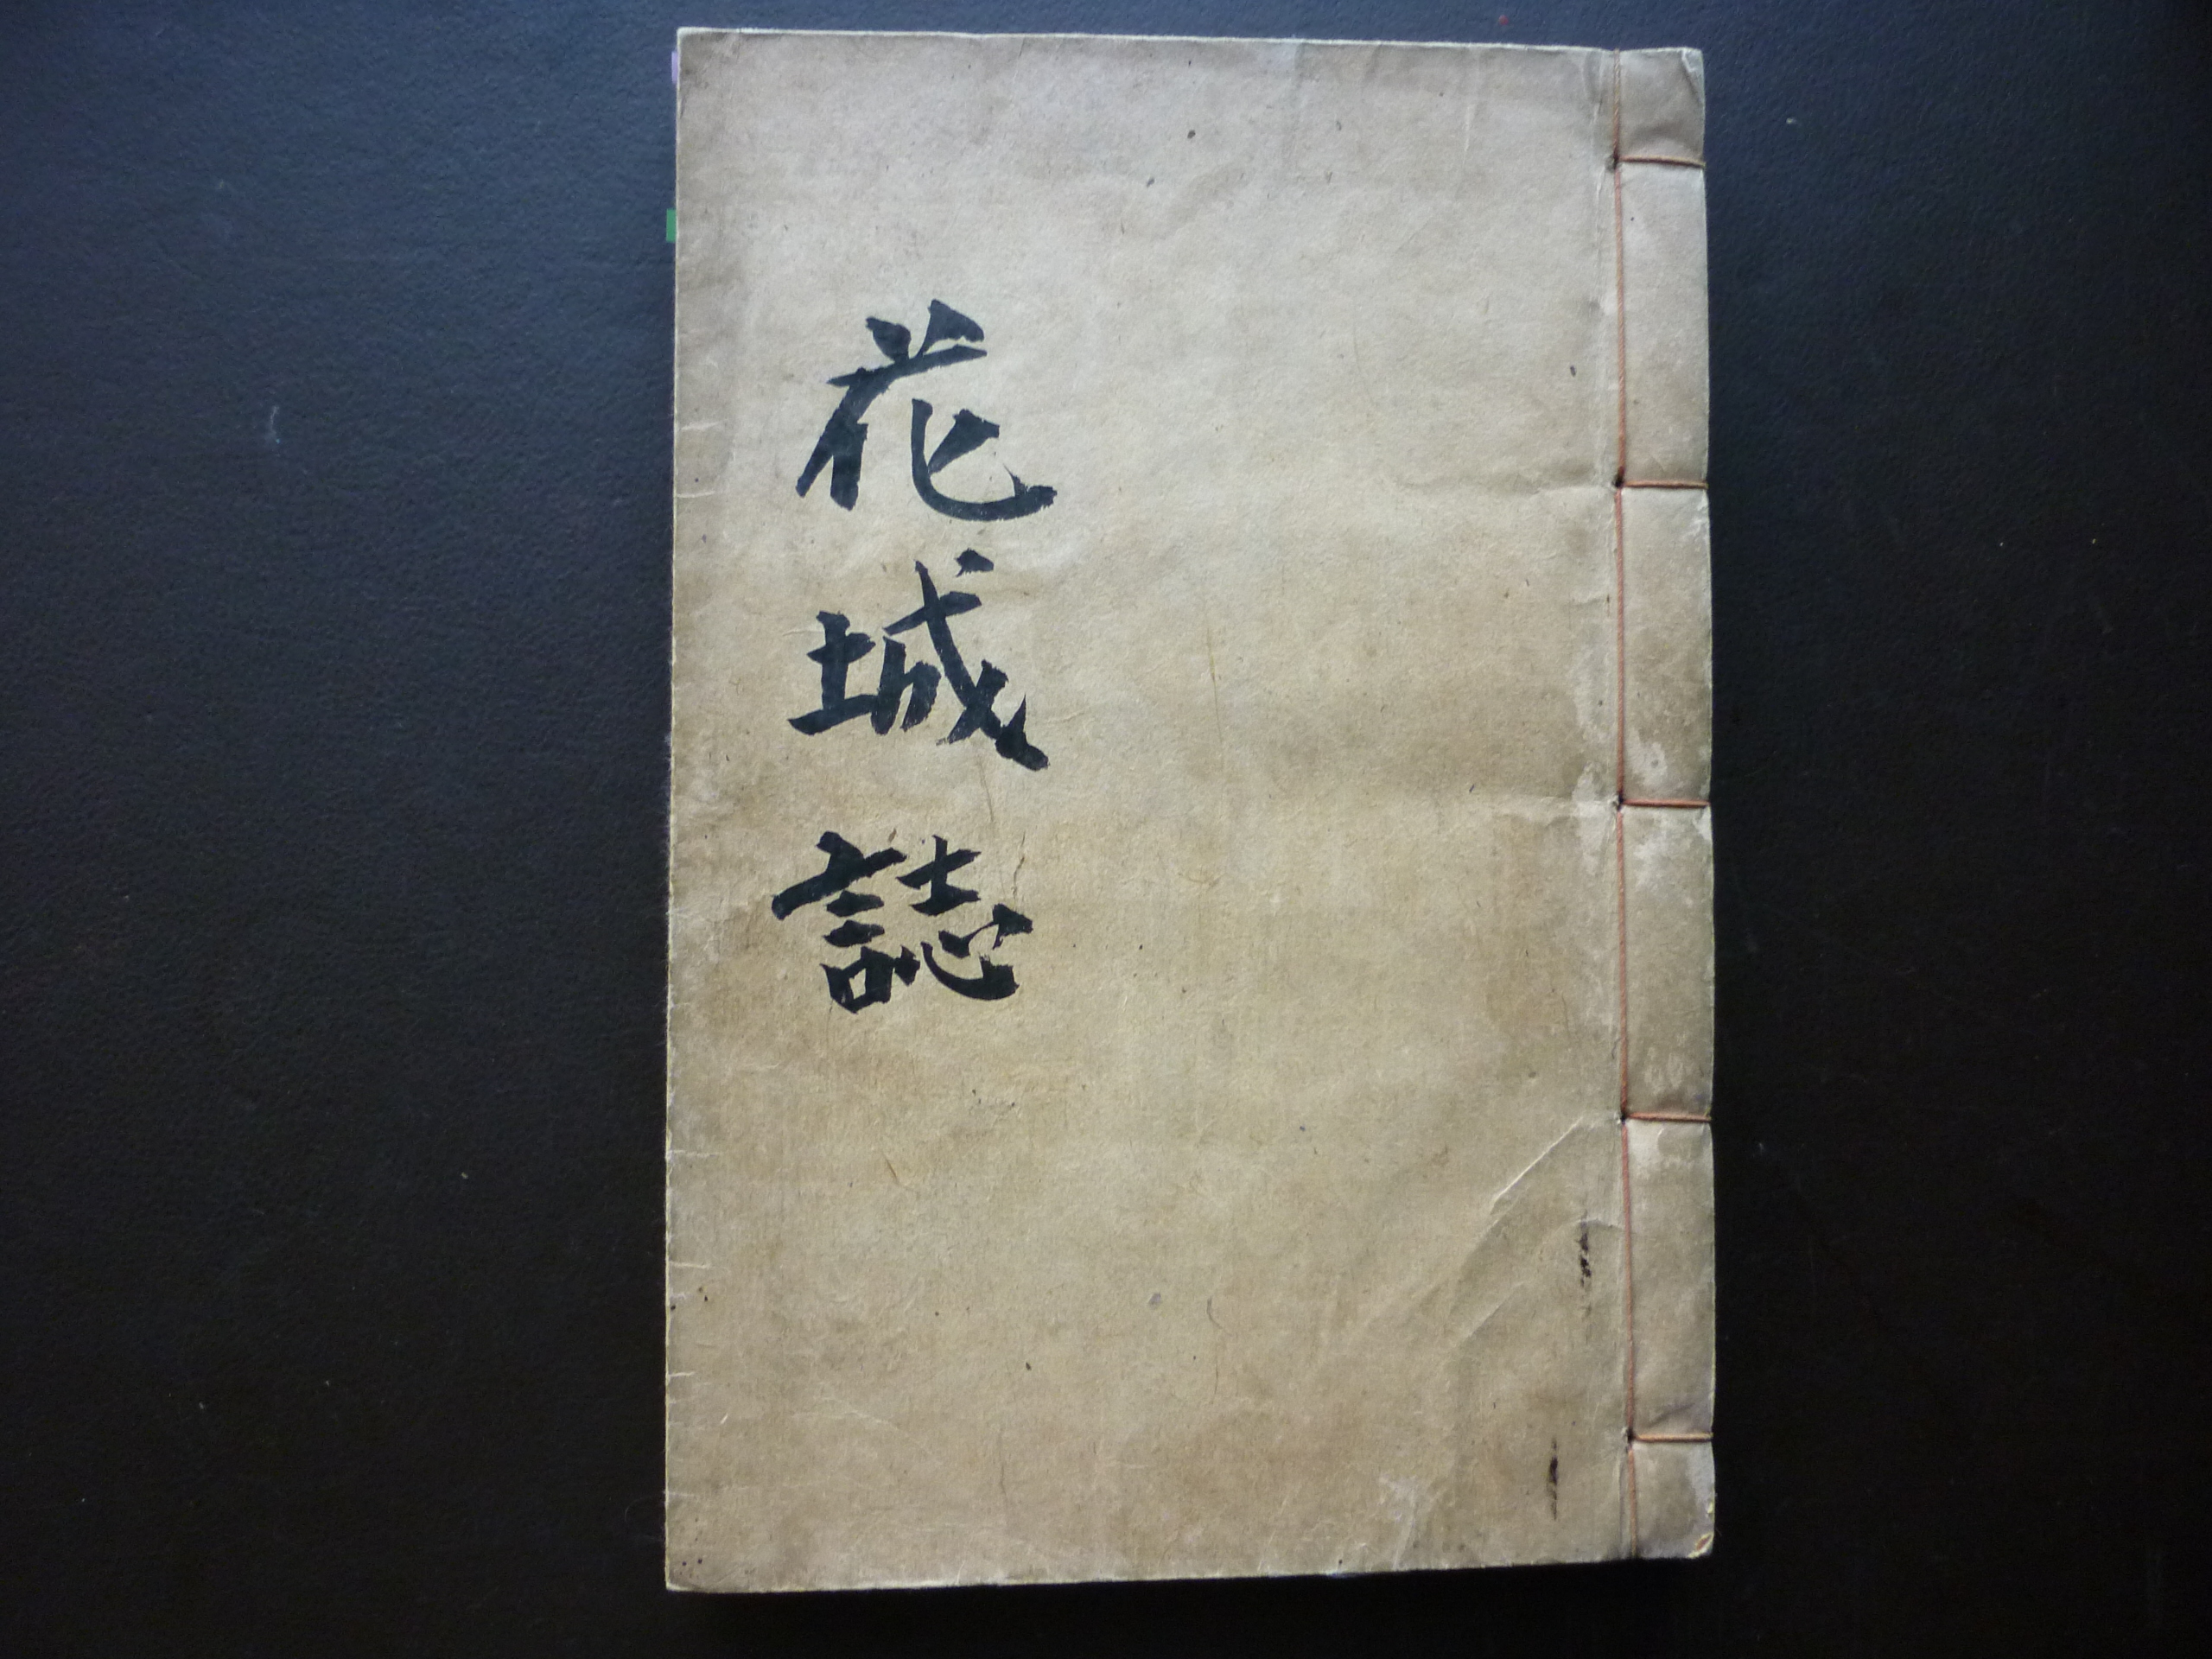 花城誌